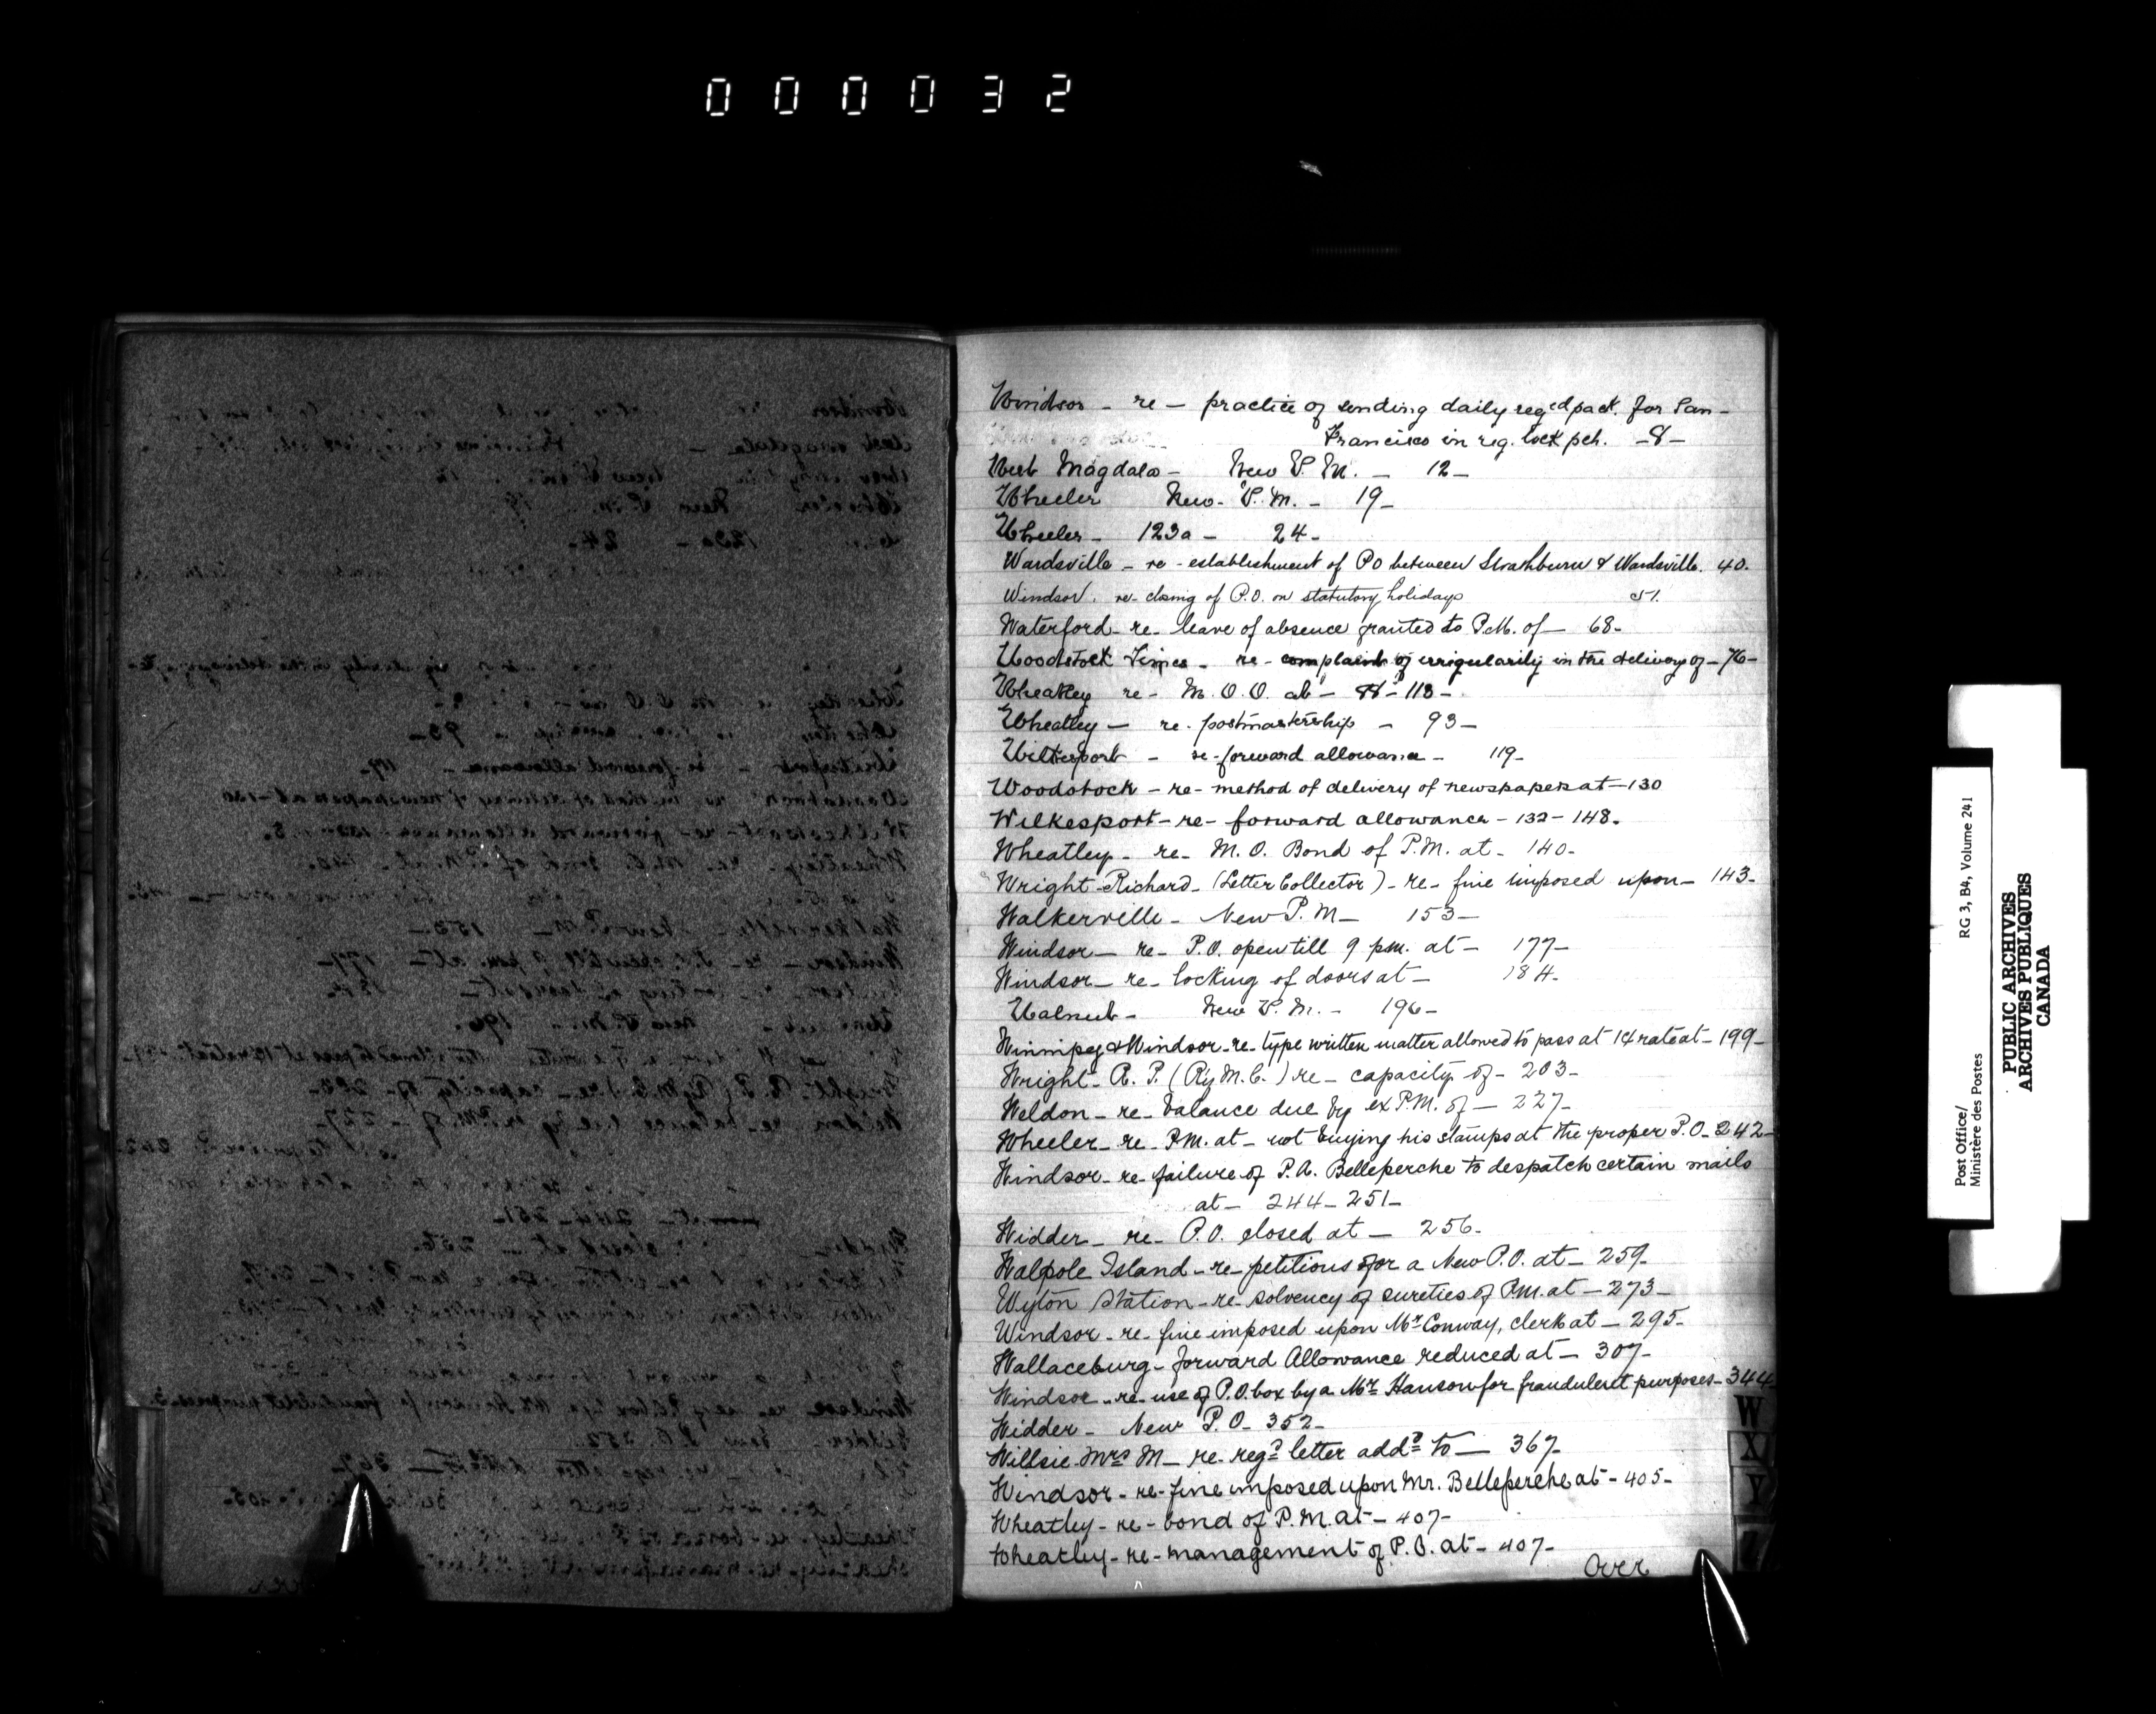 000032
Windsor - re - practice of sending daily reg'd pack. for San-
Francisco in reg. lock pch. - 8 -
West Magdala - New P.M. - 12 -
Wheeler New P.M. - 19 -
Wheeler - 123a - 24 -
Wardsville - re - establishment of PO between Strathburn & Wardsville. 40.
Windsor. re - closing of P.O. on statutory holidays 51.
Waterford - re - leave of absence granted to P.M. of - 68 -
Woodstock Times - re - complaint of irrigularity in the delivery of - 76 -
Wheatley re - M.O.O. at - 113 -
Wheatley - re - postmastership - 93 -
re - forward allowance - 119 -
Woodstock - re - method of delivery of newspapers at - 130
Wilkesport - re - forward allowance - 132 - 148.
Wheatley - re - M.O. Bond of P.M. at - 140 -
Wright Richard - (Letter Collector) - re - fine imposed upon - 143 -
Walkerville - New P.M - 153 -
Windsor - re - P.O. open till 9 p.m. at - 177 -
Windsor - re - locking of doors at - 184 -
Walnut - New P.M. - 196 -
Winnipeg & Windsor - re - type written matter allowed to pass at 1¢ rate at - 199 -
Wright - R. P. (Ry M.C.) re - capacity of - 203 -
Weldon - re - balance due by ex P.M. of - 227 -
Wheeler - re - P.M. at - not buying his stamps at the proper P.O. - 242 -
Windsor - re - failure of P.A. Belleperche to despatch certain mails
at - 244 - 251 -
Widder - re - P.O. closed at - 256 -
Walpole Island - re - petitions for a New P.O. at - 259 -
Wyton Station - re - solvency of sureties of P.M. at - 273 -
Windsor - re - fine imposed upon Mr Conway, clerk at - 295 -
Wallaceburg - forward Allowance reduced at - 307 -
Windsor - re - use of P.O. box by a Mr Hanson for fraudulent purposes - 344
Widder - New P.O. 352 -
Willsie Mrs M - re - regd letter addd to - 367 -
Windsor - re - fine imposed upon Mr. Belleperche at - 405 -
Wheatley - re - bond of P.M. at - 407 -
Wheatley - re - management of P.O. at - 407 -
Over
W
X
Y
Z
Post Office/
Ministère des Postes
RG 3, B4, Volume 241
PUBLIC ARCHIVES
ARCHIVES PUBLIQUES
CANADA